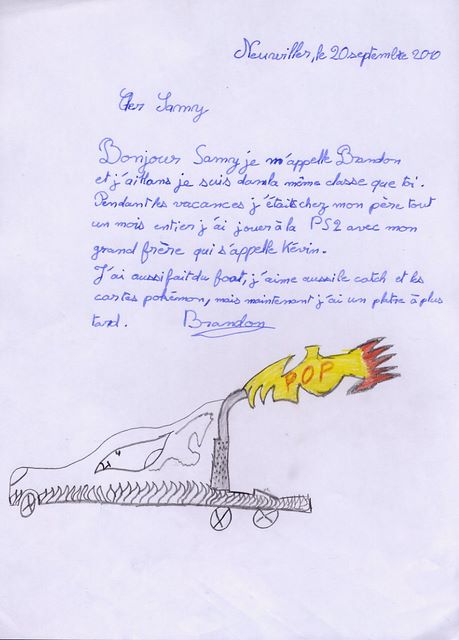 Neuwiller, le 20 septembre 2010
Cher Samy
Bonjour Samy je m'appelle Brandon
et j'ai 11ans je suis dans la même classe que toi.
Pendant les vacances j'étais chez mon père tout
un mois entier j'ai jouer à la PS2 avec mon
grand frère qui s'appelle Kévin.
J'ai aussi fait du foot, j'aime aussi le catch et les
cartes pokémon, mais maintenant j'ai un plâtre à plus
tard. Brandon
POP